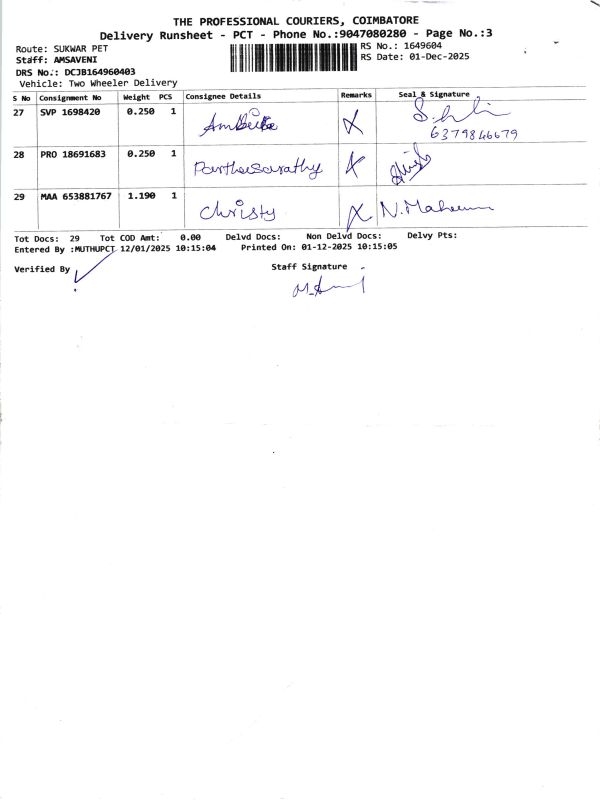 THE PROFESSIONAL COURIERS, COIMBATORE
Delivery Runsheet - PCT - Phone No.:9047080280 - Page No.:3
Route: SUKWAR PET
RS No.: 1649604
Staff: AMSAVENI
RS Date: 01-Dec-2025
DRS No.: DCJB164960403
Vehicle: Two Wheeler Delivery
S No Consignment No Weight PCS Consignee Details Remarks Seal & Signature
27 SVP 1698420 0.250 1 Ambika
6379846679
28 PRO 18691683 0.250 1 Parthasarathy
29 MAA 653881767 1.190 1 Christy
Tot Docs: 29 Tot COD Amt: 0.00 Delvd Docs: Non Delvd Docs: Delvy Pts:
Entered By :MUTHUPCT 12/01/2025 10:15:04 Printed On: 01-12-2025 10:15:05
Verified By Staff Signature